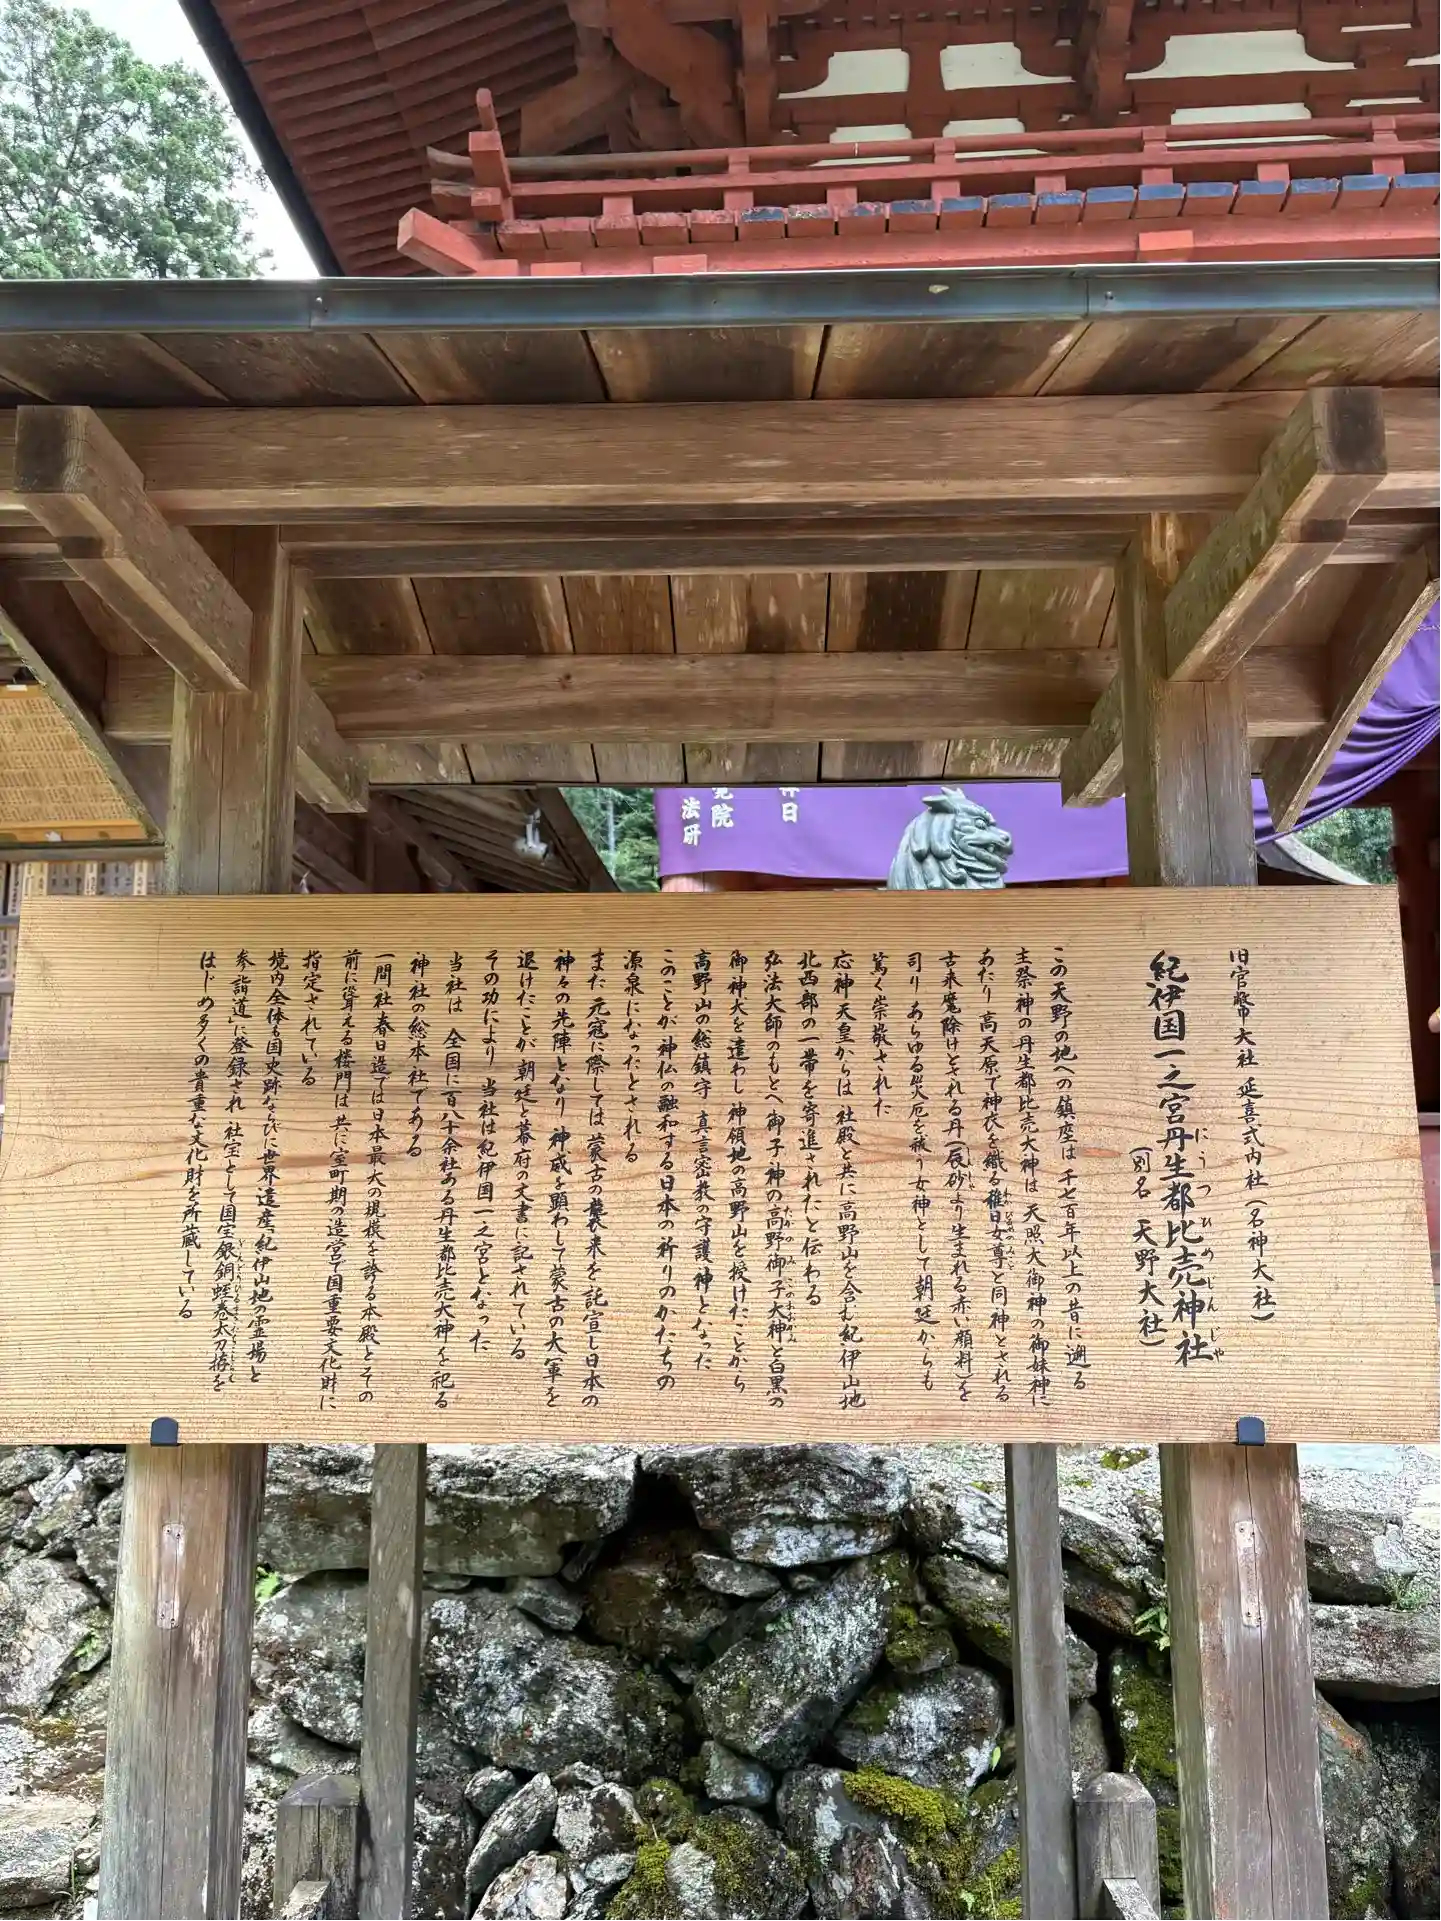 旧官幣大社 延喜式内社(名神大社)
紀伊国一之宮丹生都比売神社
にうつひめじんじゃ
(別名 天野大社)
この天野の地への鎮座は 千七百年以上の昔に遡る
主祭神の丹生都比売大神は 天照大御神の御妹神に
あたり 高天原で神衣を織る稚日女尊と同神とされる
古来魔除けとされる丹(辰砂より生まれる赤い顔料)を
司り あらゆる災厄を祓う女神として朝廷からも
篤く崇敬された
応神天皇からは 社殿と共に高野山を含む紀伊山地
北西部の一帯を寄進されたと伝わる
弘法大師のもとへ御子神の高野御子大神と白黒の
御神犬を遣わし 神領地の高野山を授けたことから
高野山の総鎮守 真言密教の守護神となった
このことが 神仏の融和する日本の祈りのかたちの
源泉になったとされる
また 元寇に際しては 蒙古の襲来を託宣し日本の
神々の先陣となり 神威を顕わして蒙古の大軍を
退けたことが 朝廷と幕府の文書に記されている
その功により 当社は紀伊国一之宮となった
当社は 全国に百八十余社ある丹生都比売大神を祀る
神社の総本社である
一間社春日造では日本最大の規模を誇る本殿とその
前に聳える楼門は 共に室町期の造営で国重要文化財に
指定されている
境内全体も国史跡ならびに世界遺産「紀伊山地の霊場と
参詣道」に登録され 社宝として国宝銀銅蛭巻太刀拵を
はじめ多くの貴重な文化財を所蔵している
院
法研